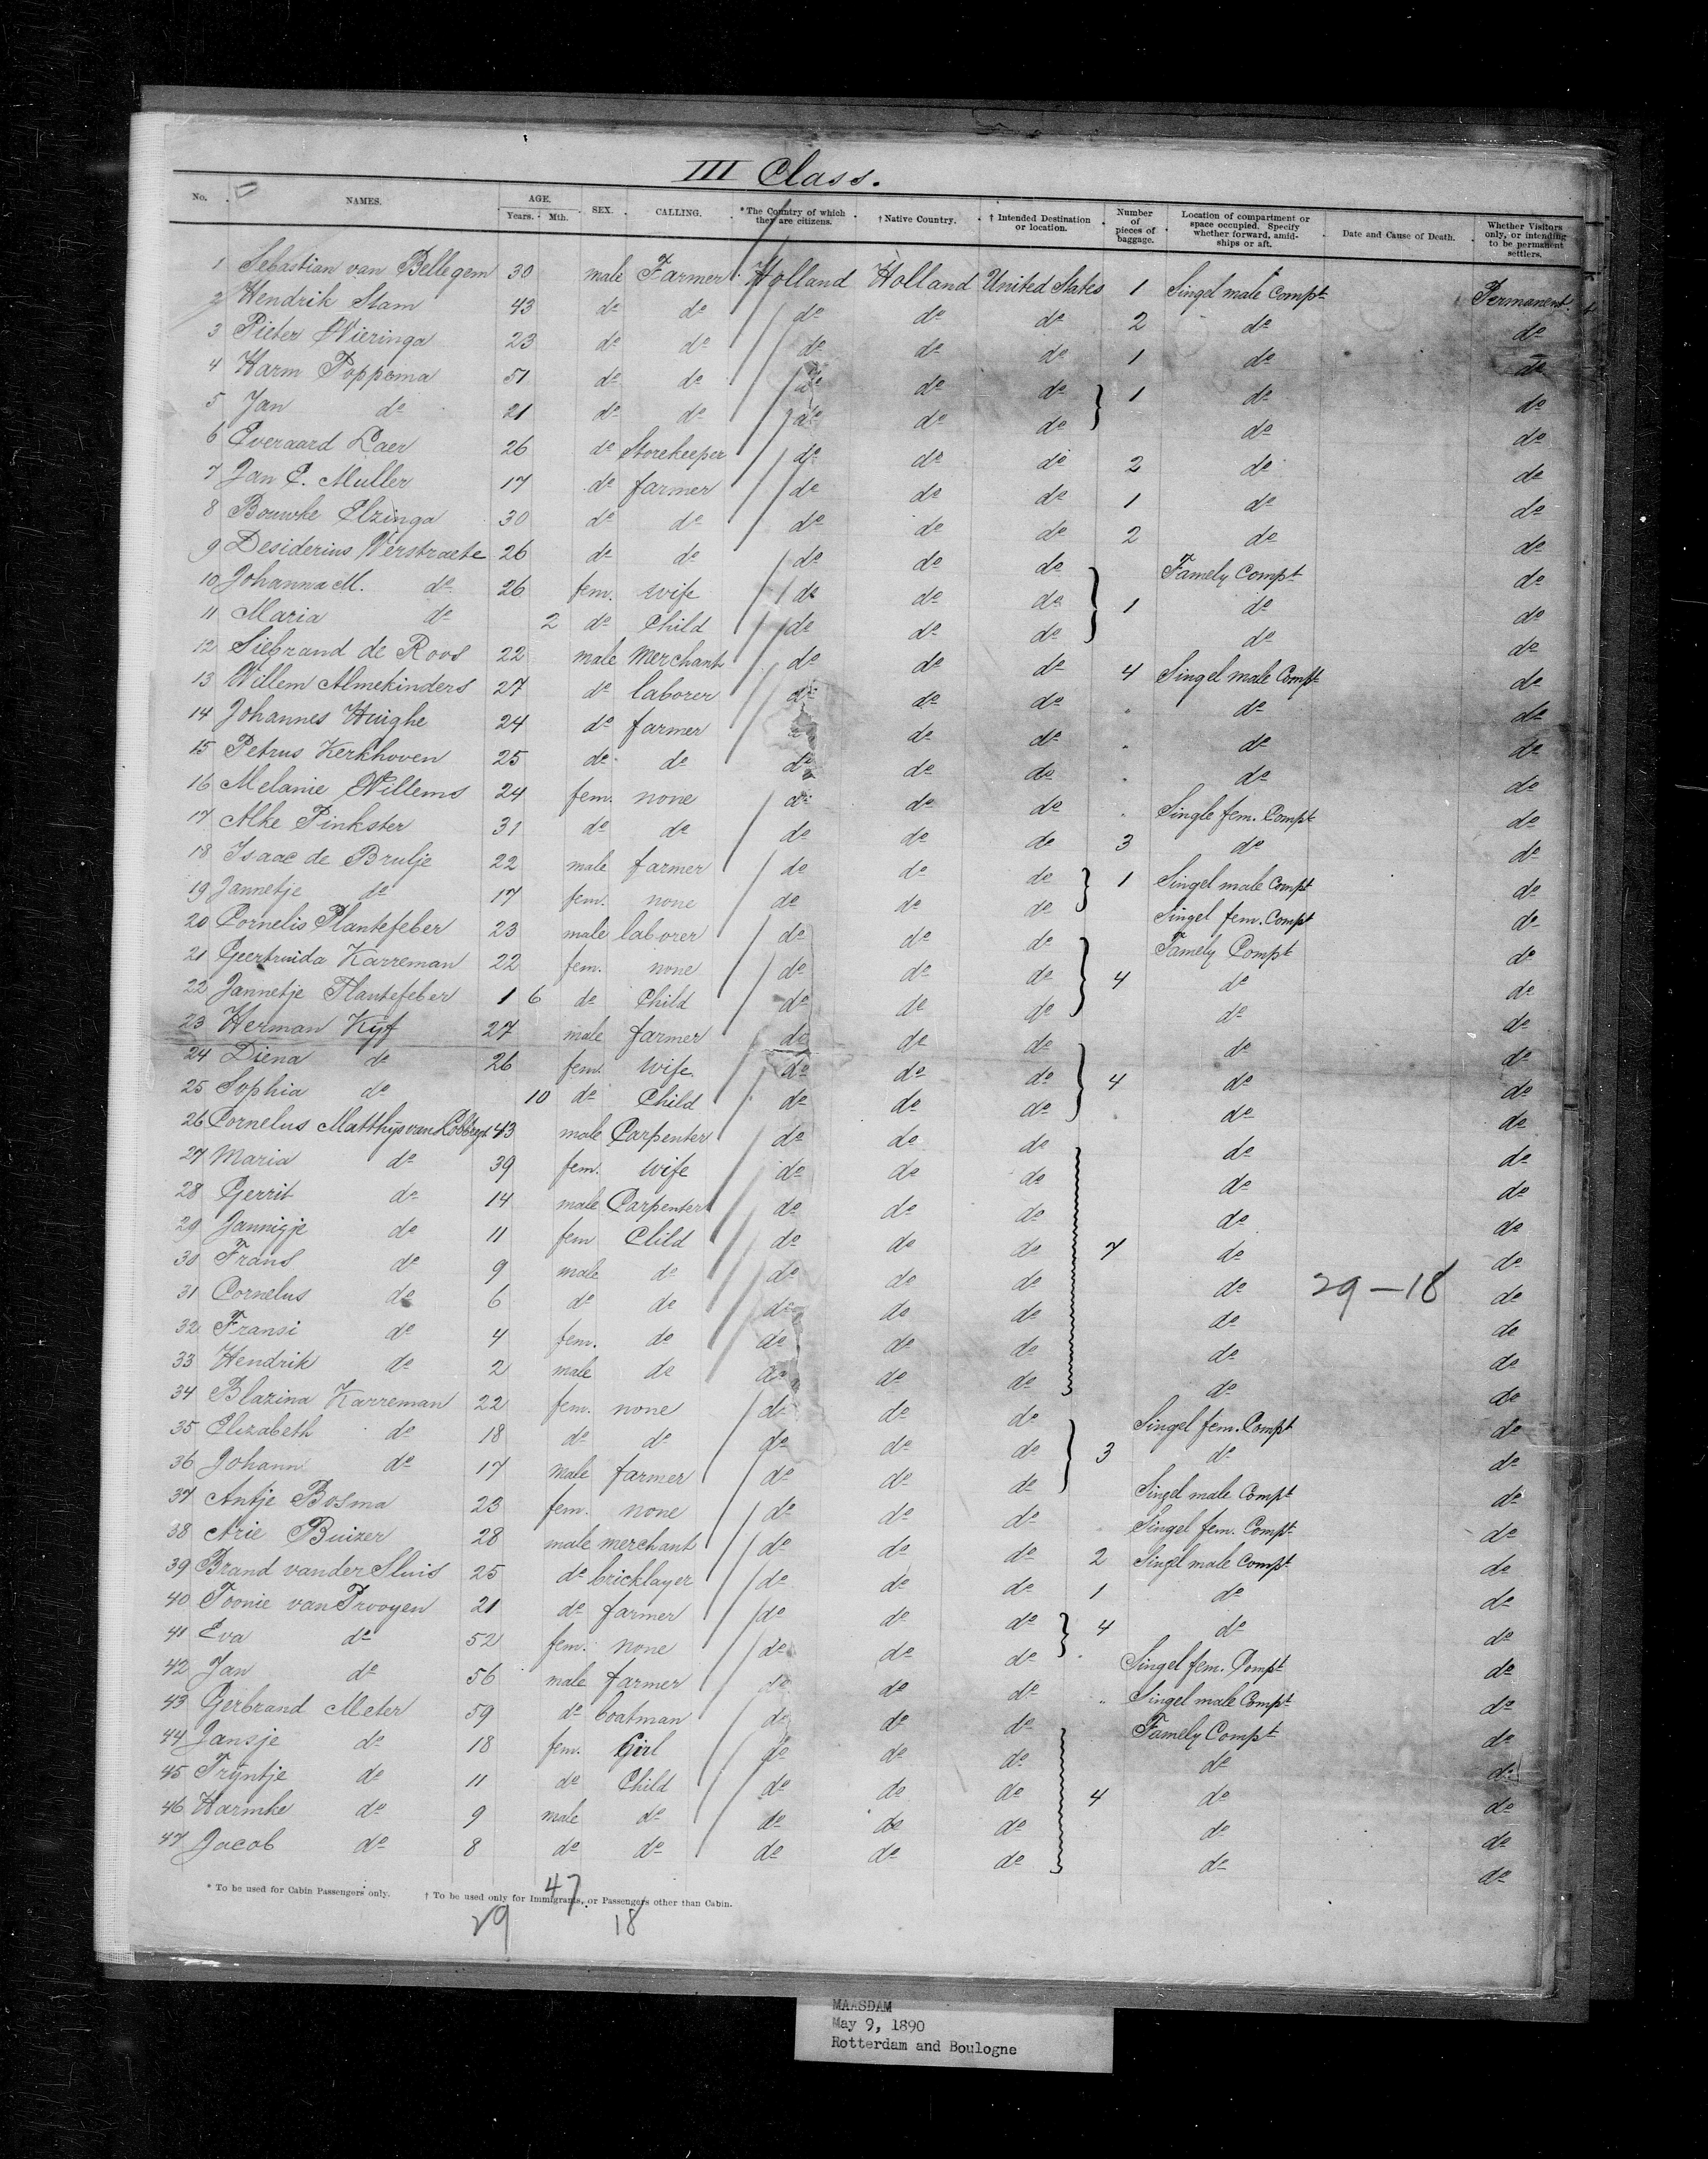 III Class.
No. NAMES. AGE. Years. Mth. SEX. CALLING. *The Country of which they are citizens. † Native Country. † Intended Destination or location. Number of pieces of baggage. Location of compartment or space occupied. Specify whether forward, amidships or aft. Date and Cause of Death. Whether Visitors only, or intending to be permanent settlers.
1 Sebastian van Bellegem 30 male Farmer Holland Holland United States 1 Singel male Compt Permanent.
2 Hendrik Stam 43 do do do do do 2 do do
3 Pieter Wieringa 23 do do do do do 1 do do
4 Harm Poppema 51 do do do do do 1 do do
5 Jan do 21 do do do do do do do
6 Everaard Laer 26 do Storekeeper do do do 2 do do
7 Jan E. Muller 17 do farmer do do do 1 do do
8 Bouwke Elzinga 30 do do do do do 2 do do
9 Desiderius Verstraete 26 do do do do do Famely Compt do
10 Johanna M. do 26 fem. wife do do do 1 do do
11 Maria do 2 do Child do do do do do
12 Siebrand de Roos 22 male Merchant do do do 4 Singel male Compt do
13 Willem Almekinders 27 do laborer do do do do do
14 Johannes Huighe 24 do farmer do do do do do
15 Petrus Kerkhoven 25 do do do do do do do
16 Melanie Willems 24 fem. none do do do Single fem. Compt do
17 Alke Pinkster 31 do do do do do 3 do do
18 Isaac de Brulje 22 male farmer do do do 1 Singel male Compt do
19 Jannetje do 17 fem. none do do do Singel fem. Compt do
20 Cornelis Plantefeber 23 male laborer do do do Famely Compt do
21 Geertruida Karreman 22 fem. none do do do 4 do do
22 Jannetje Plantefeber 1 6 do Child do do do do do
23 Herman Kyf 27 male farmer do do do do do
24 Diena do 26 fem. wife do do do 4 do do
25 Sophia do 10 do Child do do do do do
26 Cornelus Matthijs van 43 male Carpenter do do do do do
27 Maria do 39 fem. wife do do do do do
28 Gerrit do 14 male Carpenter do do do do do
29 Jannigje do 11 fem Clild do do do 7 do do
30 Frans do 9 male do do do do do 29-18 do
31 Cornelus do 6 do do do do do do do
32 Fransi do 4 fem. do do do do do do
33 Hendrik do 2 male do do do do do do
34 Blazina Karreman 22 fem. none do do do Singel fem. Compt do
35 Elizabeth do 18 do do do do do 3 do do
36 Johann do 17 male farmer do do do Singel male Compt do
37 Antje Bosma 23 fem. none do do do Singel fem. Compt do
38 Arie Buizer 28 male merchant do do do 2 Singel male Compt do
39 Brand vander Sluis 25 do bricklayer do do do 1 do do
40 Toonie van Trooyen 21 do farmer do do do 4 do do
41 Eva do 52 fem. none do do do Singel fem. Compt do
42 Jan do 56 male farmer do do do Singel male Compt do
43 Gerbrand Meter 59 do boatman do do do Famely Compt do
44 Jansje do 18 fem. Girl do do do do do
45 Trijntje do 11 do Child do do do 4 do do
46 Harmke do 9 male do do do do do do
47 Jacob do 8 do do do do do do do
* To be used for Cabin Passengers only. † To be used only for Immigrants, or Passengers other than Cabin.
47
29 18
MAASDAM
May 9, 1890
Rotterdam and Boulogne